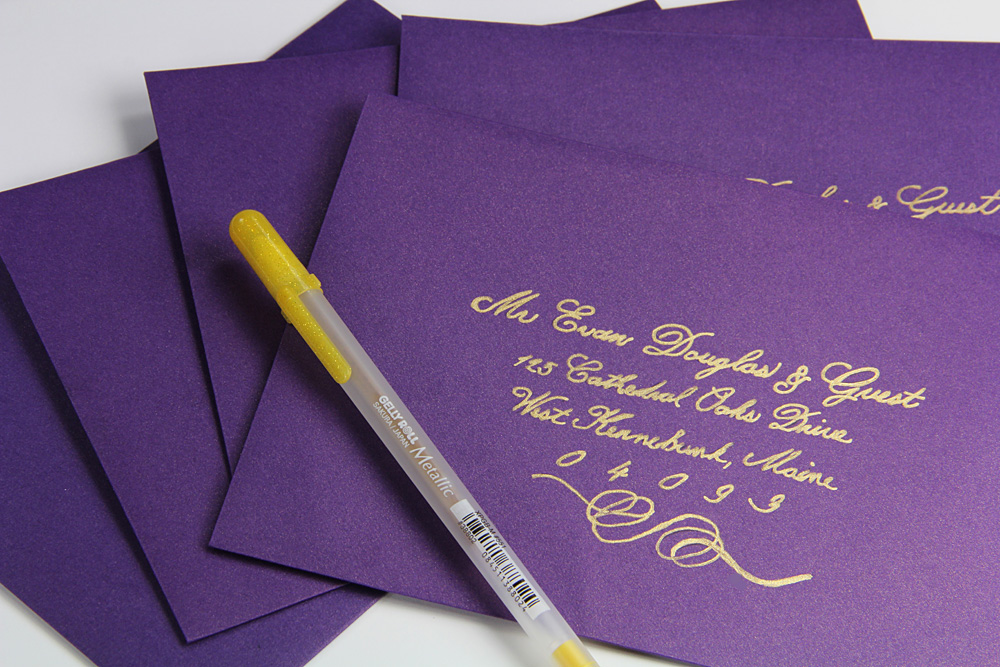 & Guest
Mr Evan Douglas & Guest
125 Cathedral Oaks Drive
West Kennebunk, Maine
0 4 0 9 3
GELLY ROLL
SAKURA / JAPAN
Metallic
084511388024